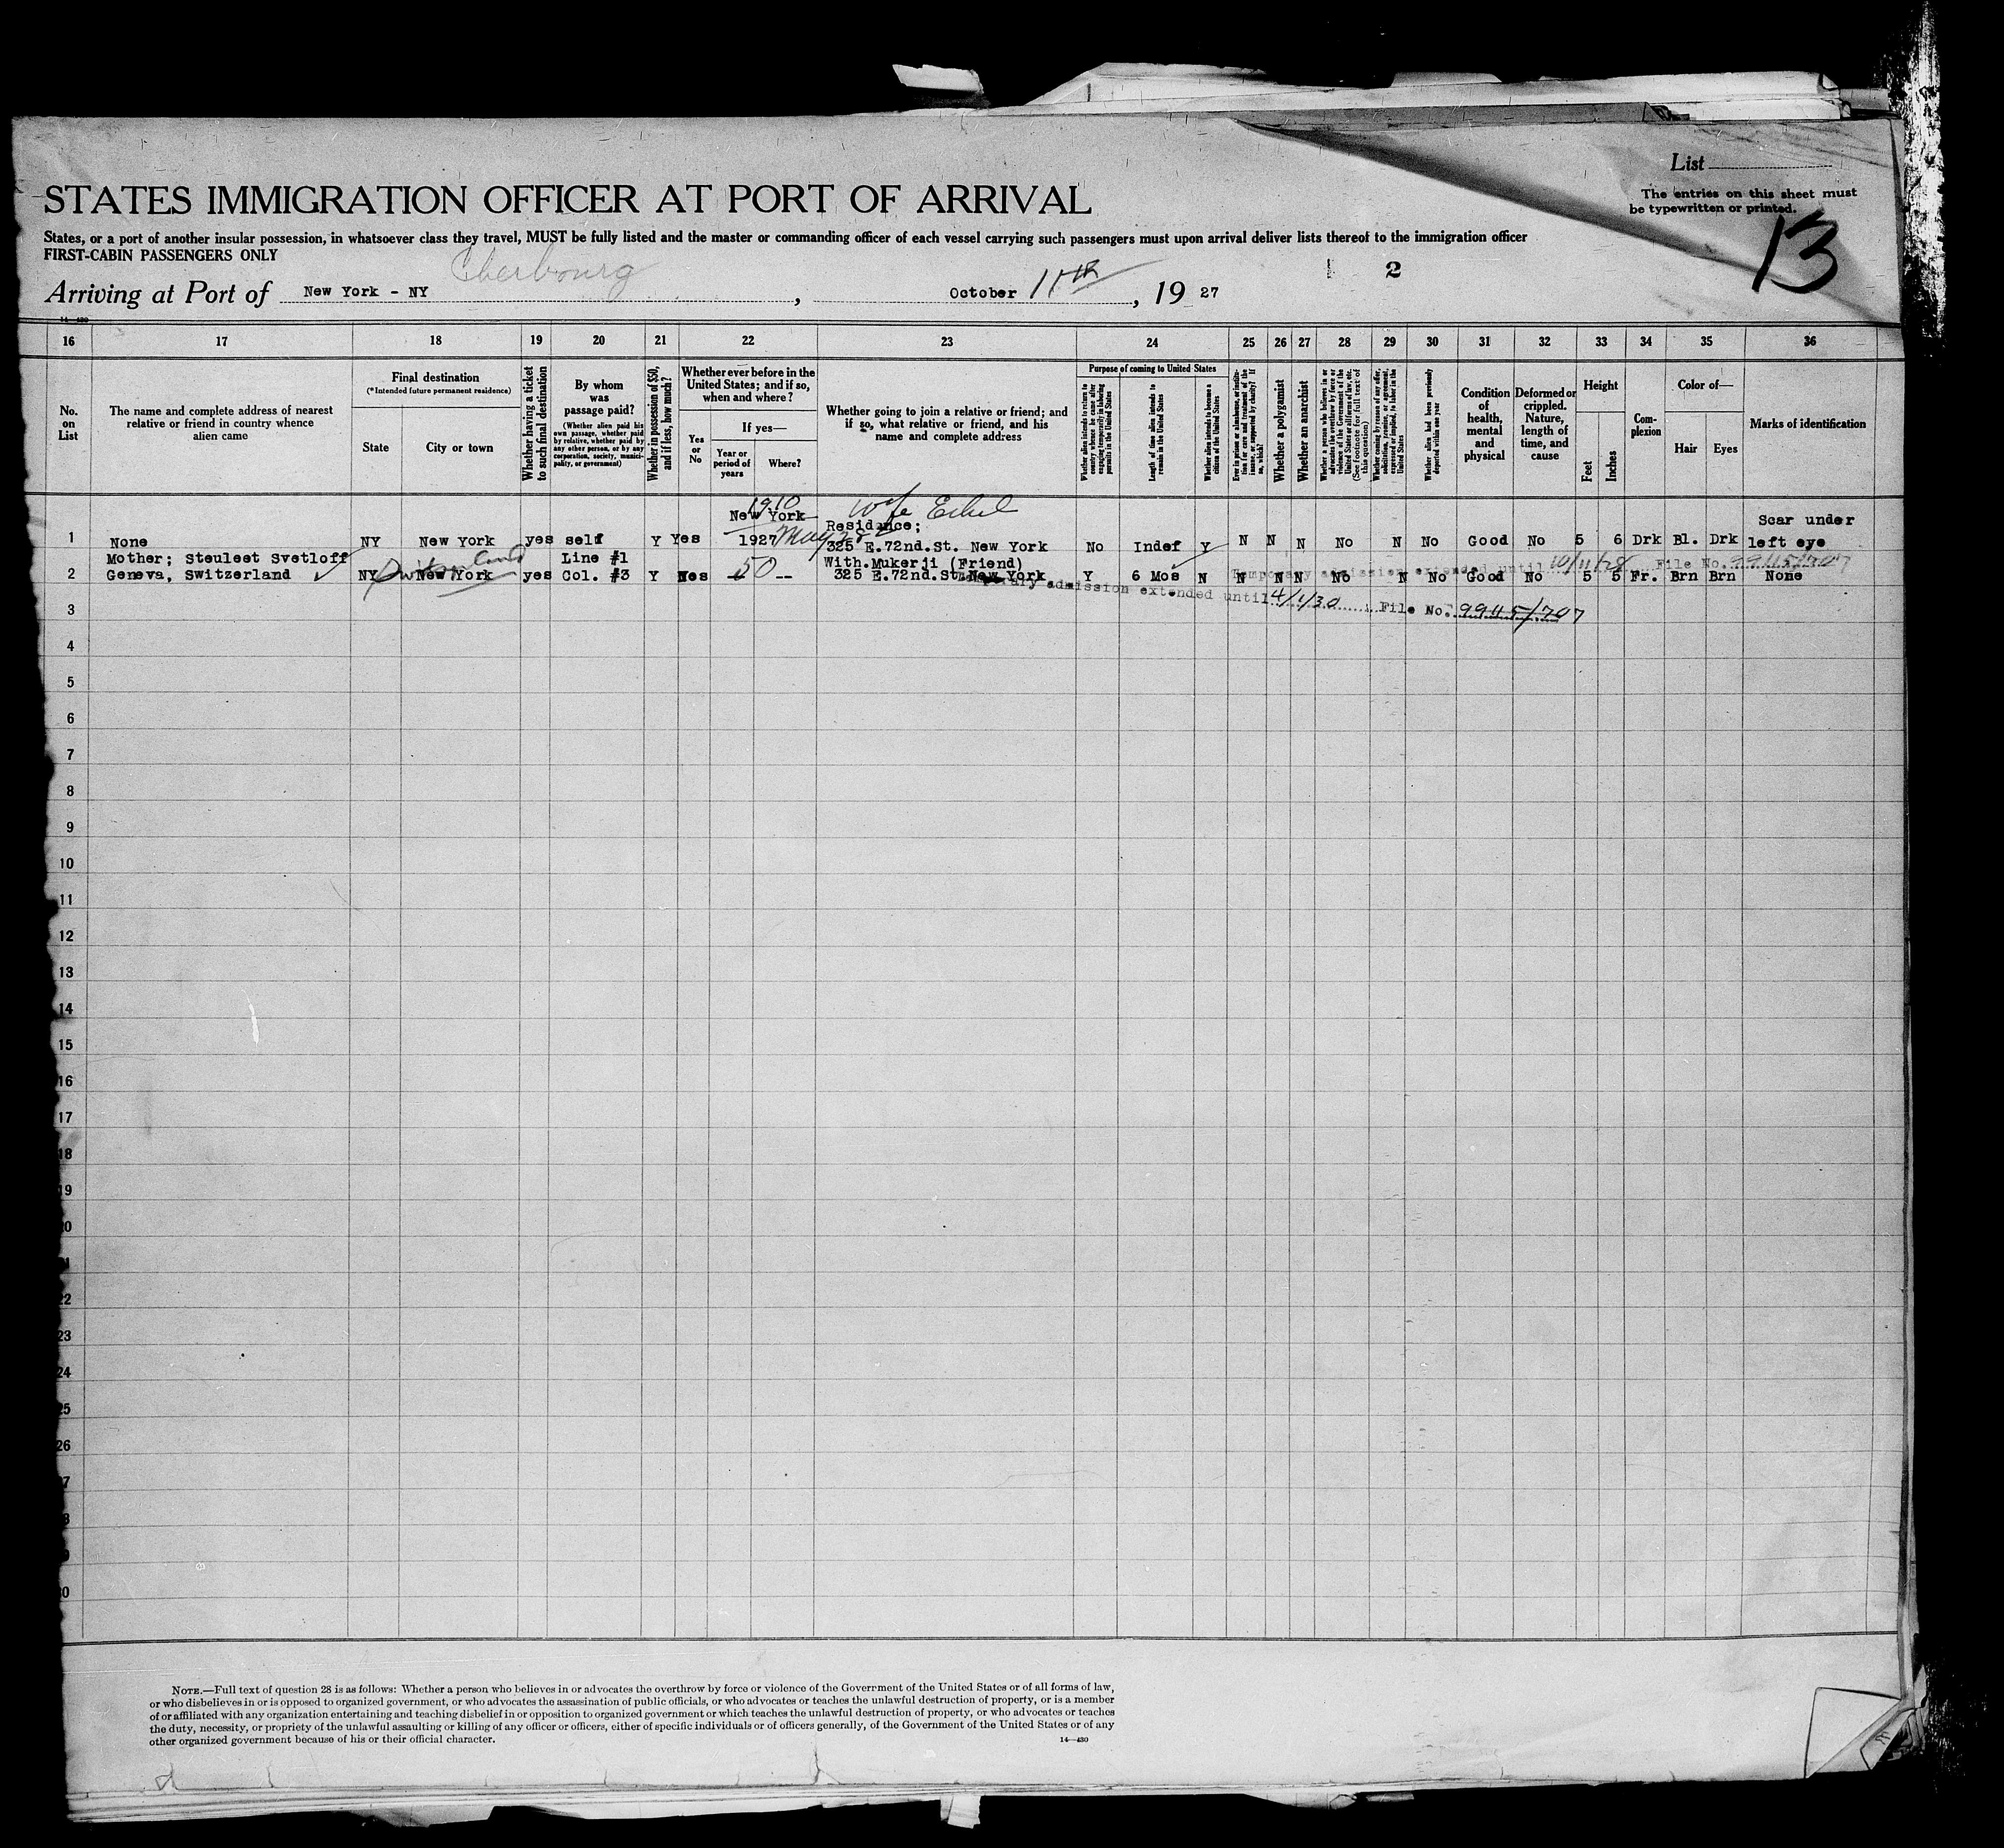 List
The entries on this sheet must
be typewritten or printed.
13
STATES IMMIGRATION OFFICER AT PORT OF ARRIVAL
States, or a port of another insular possession, in whatsoever class they travel, MUST be fully listed and the master or commanding officer of each vessel carrying such passengers must upon arrival deliver lists thereof to the immigration officer
FIRST-CABIN PASSENGERS ONLY
Cherbourg
2
Arriving at Port of New York - NY, October 11th, 19 27
14—430
16 17 18 19 20 21 22 23 24 25 26 27 28 29 30 31 32 33 34 35 36
No. on List
The name and complete address of nearest relative or friend in country whence alien came
Final destination
(*Intended future permanent residence)
State
City or town
Whether having a ticket to such final destination
By whom was passage paid?
(Whether alien paid his own passage, whether paid by relative, whether paid by any other person, or by any corporation, society, municipality, or government)
Whether in possession of $50, and if less, how much?
Whether ever before in the United States; and if so, when and where?
Yes or No
If yes—
Year or period of years
Where?
Whether going to join a relative or friend; and if so, what relative or friend, and his name and complete address
Purpose of coming to United States
Whether alien intends to return to country whence he came after engaging temporarily in laboring pursuits in the United States
Length of time alien intends to remain in the United States
Whether alien intends to become a citizen of the United States
Ever in prison or almshouse, or institution for care and treatment of the insane, or supported by charity? If so, which?
Whether a polygamist
Whether an anarchist
Whether a person who believes in or advocates the overthrow by force or violence of the Government of the United States or all forms of law, etc. (See footnote for full text of this question)
Whether coming by reason of any offer, solicitation, promise, or agreement, expressed or implied, to labor in the United States
Whether alien had been previously deported within one year
Condition of health, mental and physical
Deformed or crippled. Nature, length of time, and cause
Height
Feet
Inches
Complexion
Color of—
Hair
Eyes
Marks of identification
1910
New York
wife Ethel
Residence;
Scar under
1 None NY New York yes self Y Yes 1927 May 28 325 E.72nd.St. New York No Indef Y N N N No N No Good No 5 6 Drk Bl. Drk left eye
Mother; Steuleet Svetloff Switzerland Line #1 With.Mukerji (Friend)
Temporary admission extended until 10/11/28 File No. 99115/707
2 Geneva, Switzerland NY New York yes Col. #3 Y 50 -- 325 E.72nd.St.New York Y 6 Mos N N N N No N No Good No 5 5 Fr. Brn Brn None
Temporary admission extended until 4/1/30 File No. 99115/707
3
4
5
6
7
8
9
10
11
12
13
14
15
16
17
18
19
20
21
22
23
24
25
26
NOTE.—Full text of question 28 is as follows: Whether a person who believes in or advocates the overthrow by force or violence of the Government of the United States or of all forms of law,
or who disbelieves in or is opposed to organized government, or who advocates the assassination of public officials, or who advocates or teaches the unlawful destruction of property, or is a member
of or affiliated with any organization entertaining and teaching disbelief in or opposition to organized government or which teaches the unlawful destruction of property, or who advocates or teaches
the duty, necessity, or propriety of the unlawful assaulting or killing of any officer or officers, either of specific individuals or of officers generally, of the Government of the United States or of any
other organized government because of his or their official character.
14—430